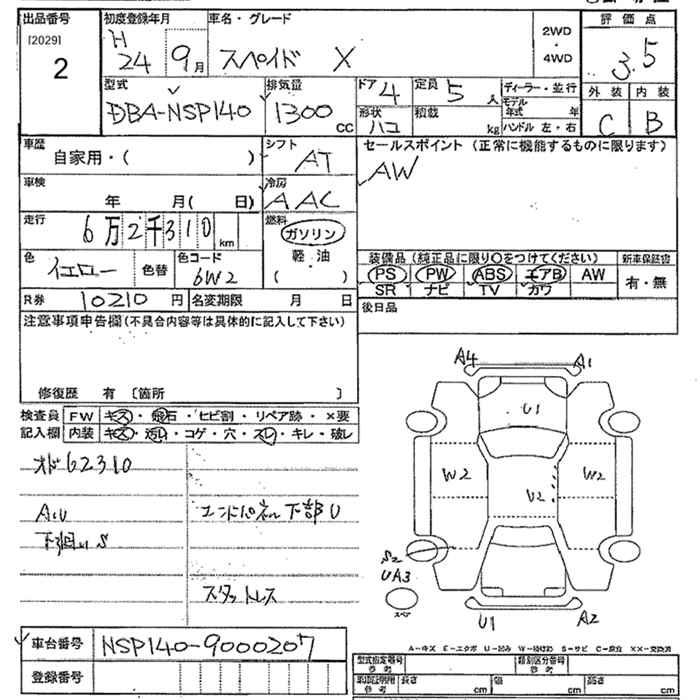 出品番号 初度登録年月 車名・グレード 評価点
[2029] 2 H 24 9月 スペイド X 2WD・4WD 3.5
型式 DBA-NSP140 排気量 1300 CC ドア 4 定員 5 人 ディーラー・並行 外装 内装
形状 ハコ 積載 kg モデル年式 年 ハンドル 左・右 C B
車歴 自家用・( ) シフト AT セールスポイント (正常に機能するものに限ります)
車検 年 月( 日) 冷房 AAC AW
走行 6万2千310 km 燃料 ガソリン
色 イエロー 色替 色コード 6W2 軽・油 ( ) 装備品 (純正品に限り○をつけてください) 新車保証書
PS PW ABS エアB AW 有・無
SR ナビ TV カワ
R券 10210 円 名変期限 月 日 後日品
注意事項申告欄(不具合内容等は具体的に記入して下さい)
修復歴 有 〔箇所 〕
検査員 FW キズ・飛石・ヒビ割・リペア跡・×要
記入欄 内装 キズ・汚れ・コゲ・穴・スレ・キレ・破レ
オド62310
A.U エンドパネル下部U
下廻りS
スタットレス
A4 A1
U1
W2 U2 W2
S2
UA3
スペア
U1 A2
車台番号 NSP140-9000207
登録番号
A-キズ E-エクボ U-凹み W-波 S-サビ C-腐食 XX-交換済
型式指定番号 参考 類別区分番号 参考
参考 長さ cm 幅 cm 高さ cm